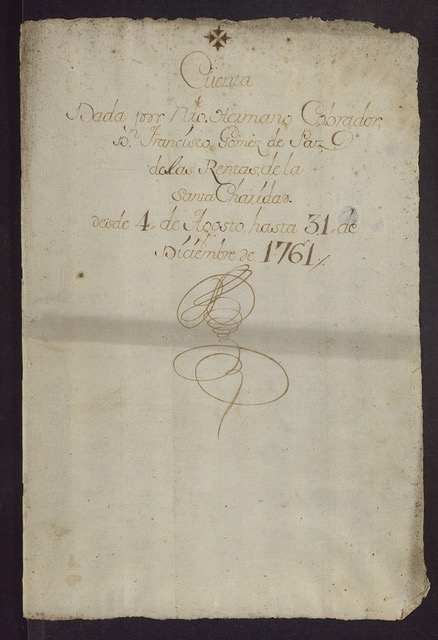 Cuenta
Dada por Nro. Hermano Cobrador,
Dn. Francisco Gomez de Paz
de las Rentas, de la
Santa Charidad.
desde 4. de Agosto, hasta 31. de
Diciembre de 1761